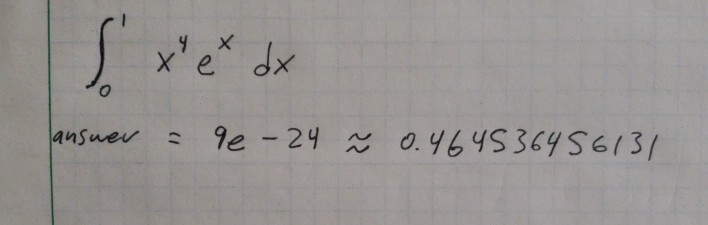 ∫₀¹ x⁴ eˣ dx
answer = 9e - 24 ≈ 0.464536456131